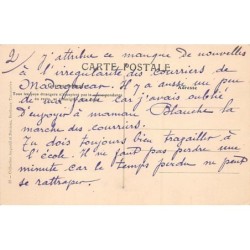 2/ j'attribue ce manque de nouvelles
CARTE POSTALE
à l'irrégularité des courriers de
Tous les pays étrangers n'acceptent pas la correspondance
Madagascar. Il y a aussi un peu
Adresse
de ma faute car j'avais oublié
d'envoyer à maman Blanche la
marche des courriers.
Tu dois toujours bien travailler à
l'école. Il ne faut pas perdre une
minute car le temps perdu ne peut
se rattraper.